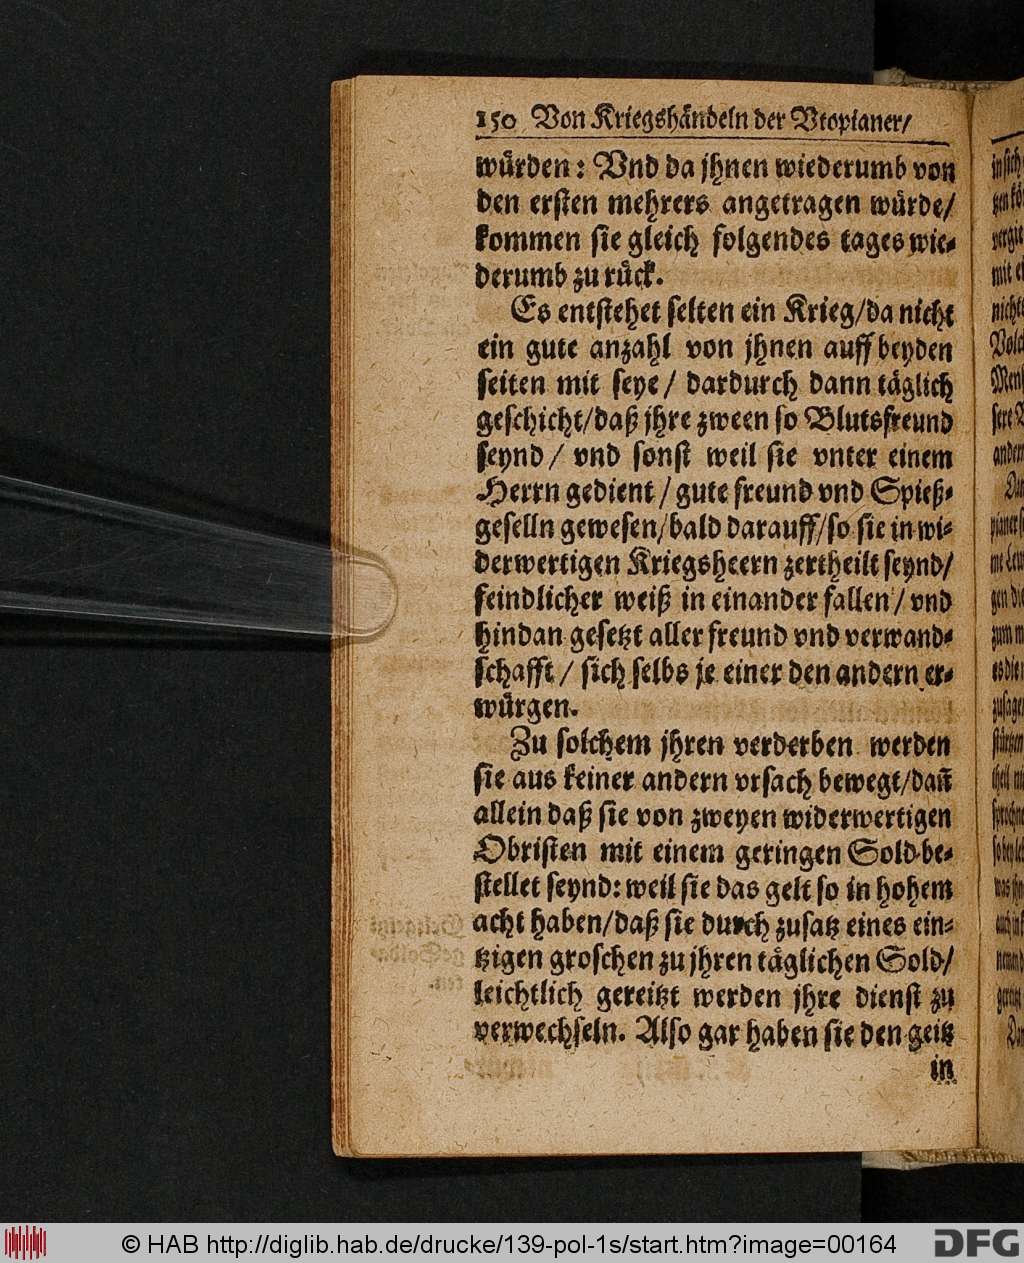 150 Von Kriegshändeln der Vtopianer/
würden: Vnd da jhnen wiederumb von
den ersten mehrers angetragen würde/
kommen sie gleich folgendes tages wie-
derumb zu rück.
Es entstehet selten ein Krieg/da nicht
ein gute anzahl von jhnen auff beyden
seiten mit seye/ dardurch dann täglich
geschicht/daß jhre zween so Blutsfreund
seynd/ vnd sonst weil sie vnter einem
Herrn gedient/gute freund vnd Spieß-
geselln gewesen/bald darauff/so sie in wi-
derwertigen Kriegsheern zertheilt seynd/
feindlicher weiß in einander fallen/ vnd
hindan gesetzt aller freund vnd verwand-
schafft/ sich selbs je einer den andern er-
würgen.
Zu solchem jhren verderben werden
sie aus keiner andern vrsach bewegt/dañ
allein daß sie von zweyen widerwertigen
Obristen mit einem geringen Sold be-
stellet seynd: weil sie das gelt so in hohem
acht haben/daß sie durch zusatz eines ein-
tzigen groschen zu jhren täglichen Sold/
leichtlich gereitzt werden jhre dienst zu
verwechseln. Also gar haben sie den geitz
in
© HAB http://diglib.hab.de/drucke/139-pol-1s/start.htm?image=00164
DFG